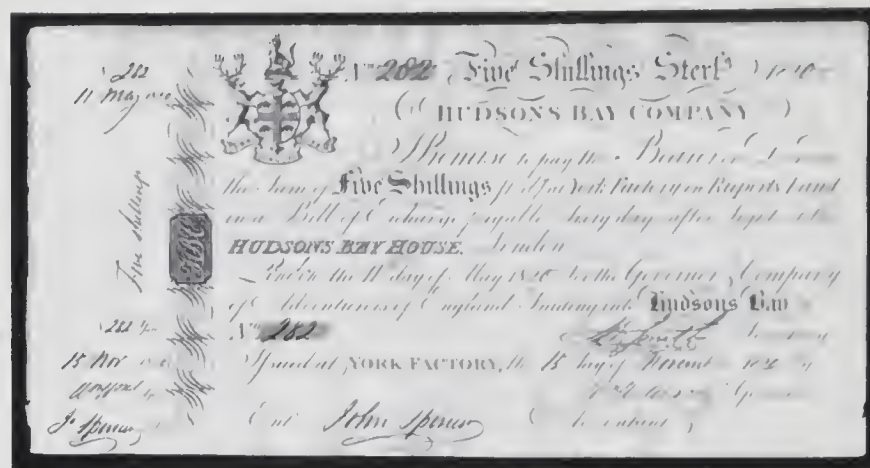 282
11 May
Five Shillings
282
15 Nov
Jn Spencer
HBC
No. 282 Five Shillings Sterg.
HUDSONS BAY COMPANY
I Promise to pay the Bearer
the Sum of Five Shillings at York Factory in Ruperts Land
in a Bill of Exchange payable Sixty days after Sight at
HUDSONS BAY HOUSE. London
London the 11 day of May 1820 for the Governor & Company
of Adventurers of England Trading into Hudsons Bay
No. 282
Issued at YORK FACTORY, the 15 day of Novemb
Ent. John Spencer Accountant